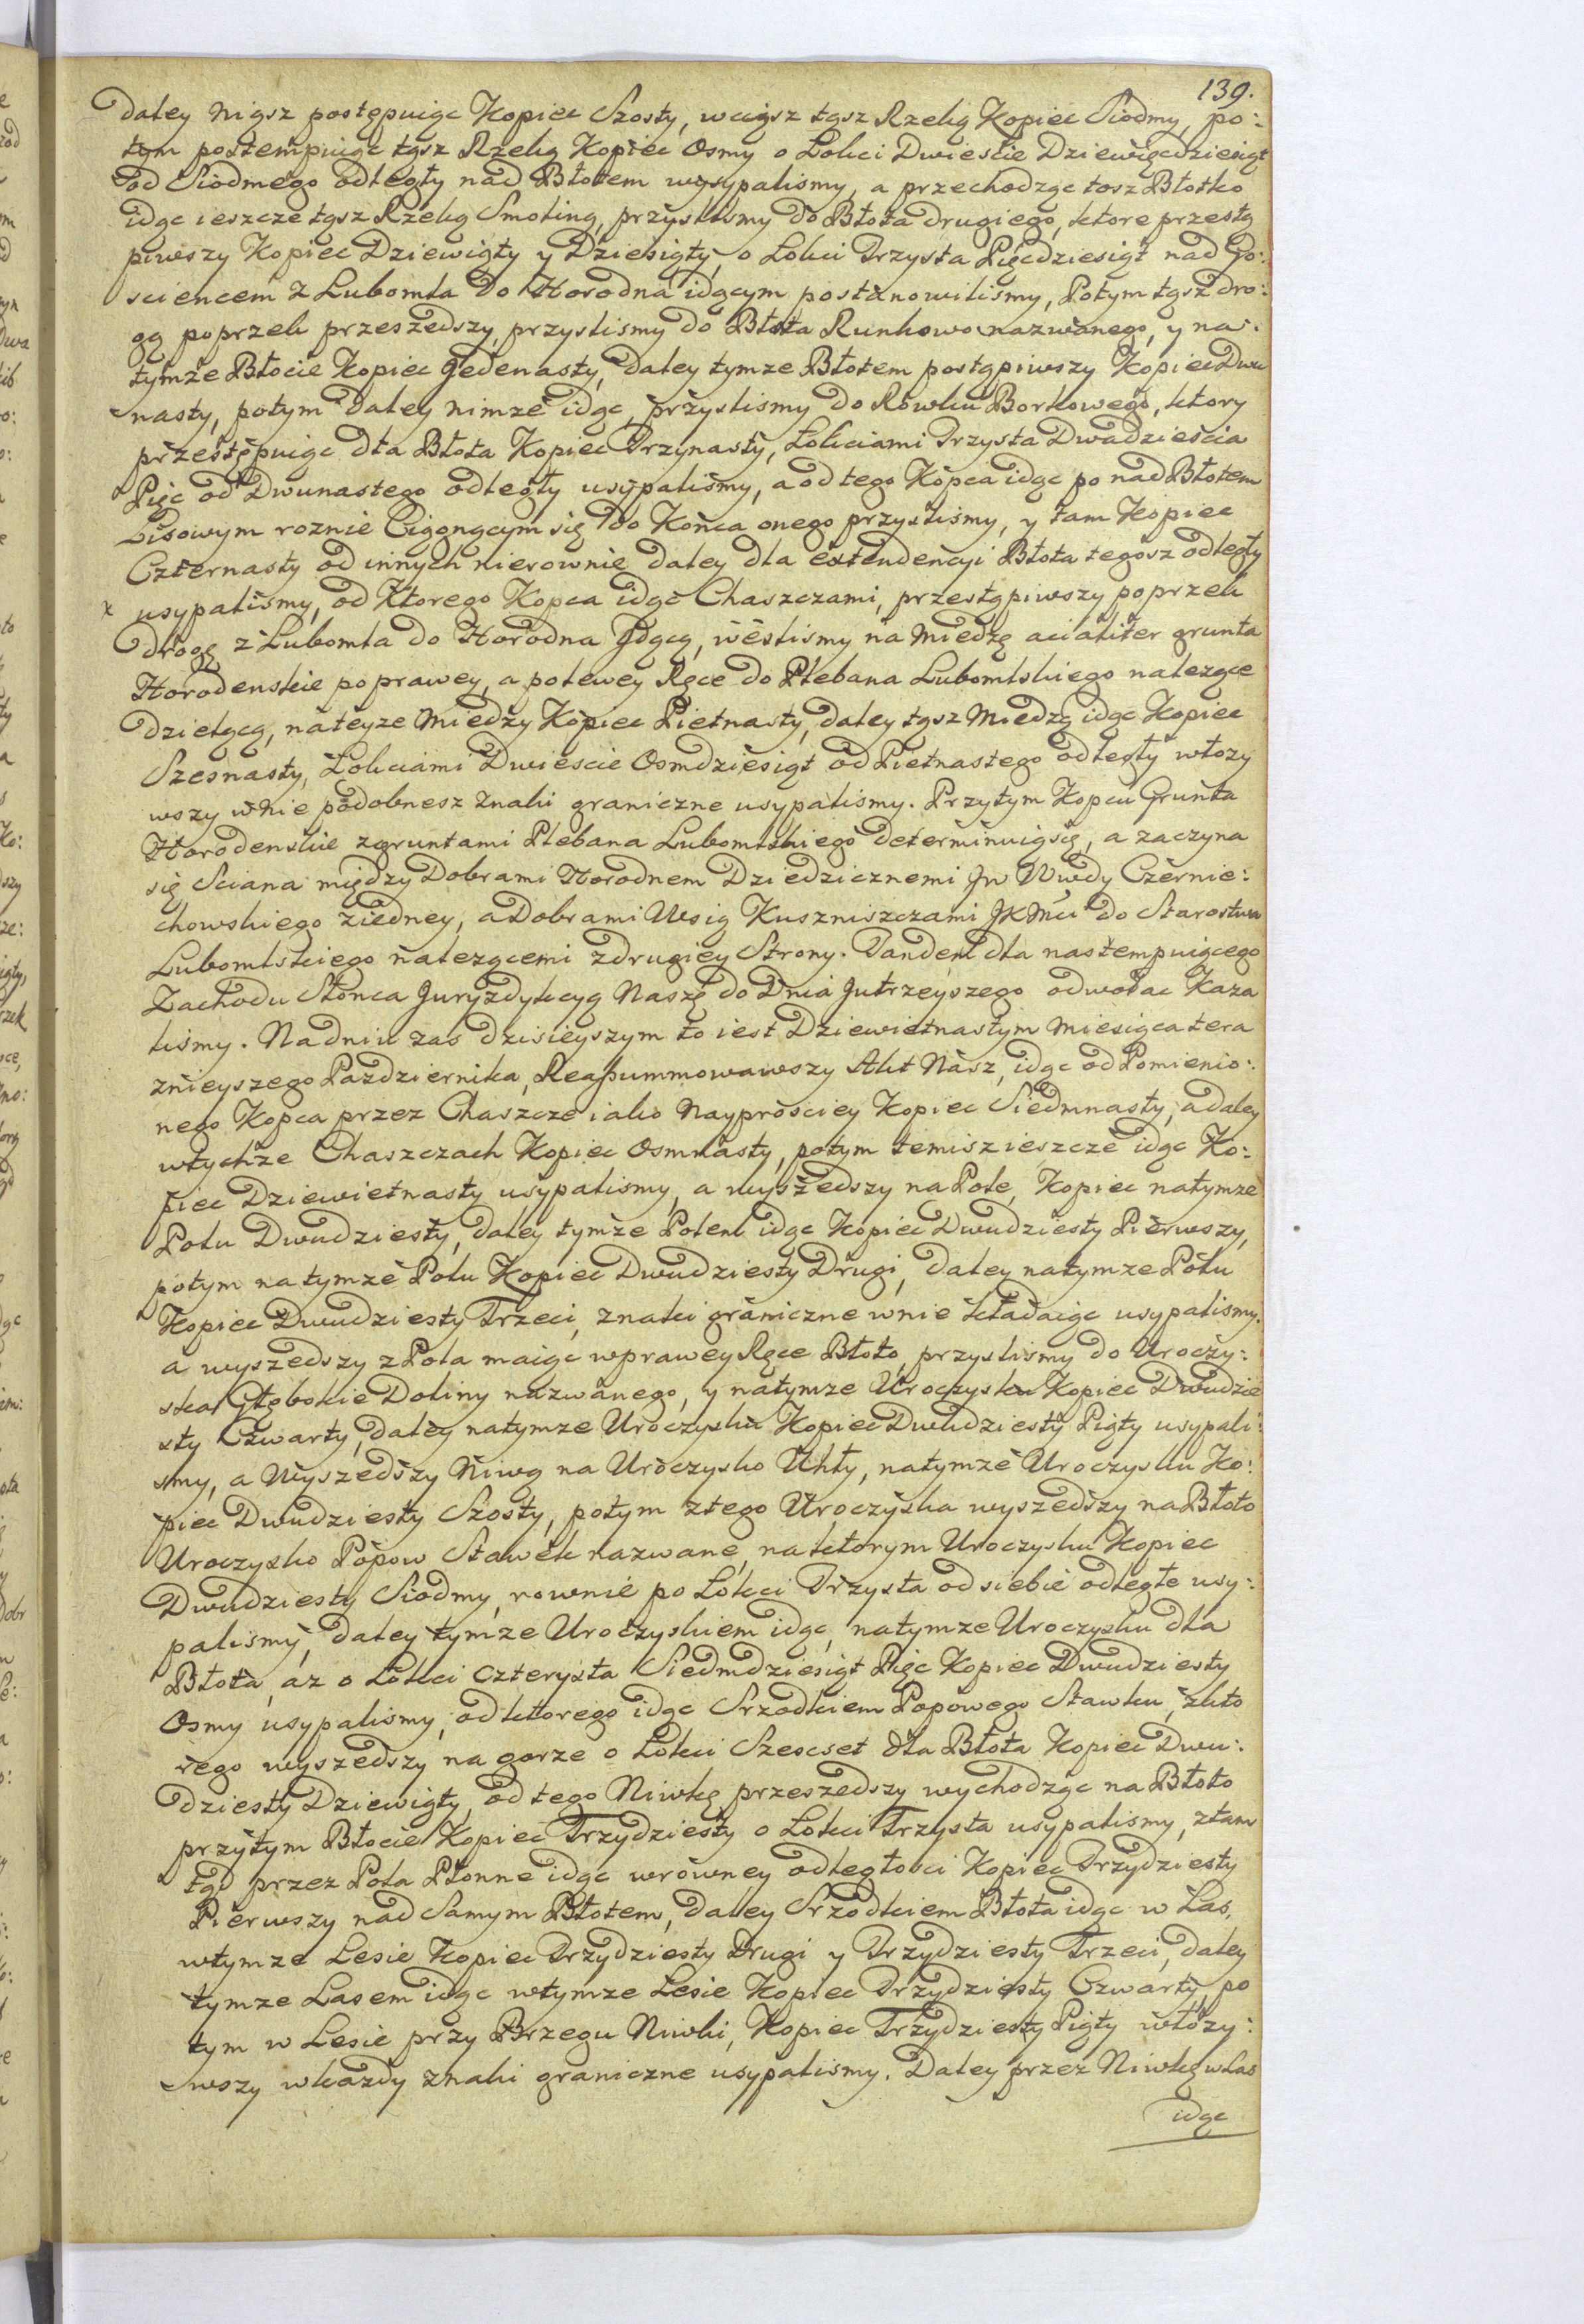 139.
daley nią sz postępuiąc Kopiec Szosty, wciąsz tąsz Rzeką Kopiec Siodmy, po:
tym postempuiąc tąsz Rzeką Kopiec Osmy o Łokci Dwieście Dziewięcdziesiąt
od Siodmego odległy nad Błotem wysypalismy, a przechodząc tosz Błotko
idąc ieszcze tąsz Rzeką Smoling, przyslismy do Błota drugiego, ktore przestą
piwszy Kopiec Dziewiąty y Dziesiąty, o Łokci Trzysta Pięcdziesiąt nad Go:
sciencem z Lubomla do Horodna idącym postanowilismy, Potym tąsz dro:
gą poprzek przeszedszy, przyslismy do Błota Runkowo nazwanego, y na
tymże Błocie Kopiec Jedenasty, daley tymze Błotem postąpiwszy Kopiec Dwu
nasty, potym daley nimze idąc, przyslismy do Rowku Borkowego, ktory
przestępuiąc dla Błota Kopiec Trzynasty, Łokciami Trzysta Dwadzieścia
Pięc od Dwunastego odległy usypalismy, a od tego Kopca idąc po nad Błotem
Lisowym roznie Ciągnącym się do Konca onego przyslismy, y tam Kopiec
Czternasty od innych nierownie daley dla extendencyi Błota tegosz odległy
x usypalismy, od Ktorego Kopca idąc Chaszczami, przestąpiwszy poprzek
drogę z Lubomla do Horodna Jdącą, weslismy na Miedzę acialiter grunta
Horodenskie po prawey, a po lewey Ręce do Plebana Lubomlskiego nalezące
dzielącą, na teyze Miedzy Kopiec Pietnasty, daley tąsz Miedzą idąc Kopiec
Szesnasty, Łokciami Dwiescie Osmdziesiąt od Pietnastego odległy włozy
wszy w Nie podobnesz Znaki graniczne usypalismy. Przytym Kopcu Grunta
Horodenskie z gruntami Plebana Lubomlskiego determinuiąsię, a zaczyna
się Sciana między Dobrami Horodnem Dziedzicznemi Jw Wwdy Czernie:
chowskiego ziedney, a Dobrami Wsią Kuszniszczami JKMci do Starostwa
Lubomlskiego nalezącemi zdrugiey Strony. Tandem dla nastempuiącego
Zachodu Słonca Juryzdykcyą Naszę do Dnia Jutrzeyszego odwołac Kaza
lismy. Na dniu zas dzisieyszym to iest Dziewietnastym Miesiąca tera
znieyszego Pazdziernika, Reassummowawszy Akt Nasz, idąc od Pomienio:
nego Kopca przez Chaszcze iako Nayprosciey Kopiec Siedmnasty, a daley
wtychze Chaszczach Kopiec Osmnasty, potym temisz ieszcze idąc Ko:
piec Dziewietnasty usypalismy, a wyszedszy na Pole, Kopiec natymze
Polu Dwudziesty, daley tymze Polem idąc Kopiec Dwudziesty Pierwszy,
potym na tymze Polu Kopiec Dwudziesty Drugi, daley natymze Polu
Kopiec Dwudziesty Trzeci, znaki graniczne wnie kładaiąc usypalismy.
a wyszedszy z Pola maiąc wprawey Ręce Błoto, przyslismy do Uroczy:
ska Głębokie Doliny nazwanego, y natymze Uroczysku Kopiec Dwudzie
sty Czwarty, daley natymze Uroczysku Kopiec Dwudziesty Piąty usypali:
smy, a Wyszedszy Niwą na Uroczysko Uhły, natymze Uroczysku Ko:
piec Dwudziesty Szosty, potym ztego Uroczyska wyszedszy na Błoto
Uroczysko Popow Stawek nazwane, naktorym Uroczysku Kopiec
Dwudziesty Siodmy, rownie po Łokci Trzysta od siebie odległe usy:
palismy, daley tymze Uroczyskiem idąc, natymze Uroczysku dla
Błota, az o Łokci Czterysta Siedmdziesiąt Pięc Kopiec Dwudziesty
Osmy usypalismy, od ktorego idąc Srzodkiem Popowego Stawku, zkto
rego wyszedszy na gorze o Łokci Szescset dla Błota Kopiec Dwu:
dziesty Dziewiąty, od tego Niwkę przeszedszy wychodząc na Błoto
przytym Błocie Kopiec Trzydziesty o Łokci Trzysta usypalismy, ztam
tąd przez Pola Płonne idąc wrowney odległosci Kopiec Trzydziesty
Pierwszy nad Samym Błotem, daley Srzodkiem Błota idąc w Las,
wtymze Lesie Kopiec Trzydziesty Drugi y Trzydziesty Trzeci, daley
tymze Lasem idąc wtymze Lesie Kopiec Trzydziesty Czwarty, po
tym w Lesie przy Brzegu Niwki, Kopiec Trzydziesty Piąty włozy:
wszy wkazdy znaki graniczne usypalismy. Daley przez Niwkę w Las
idąc